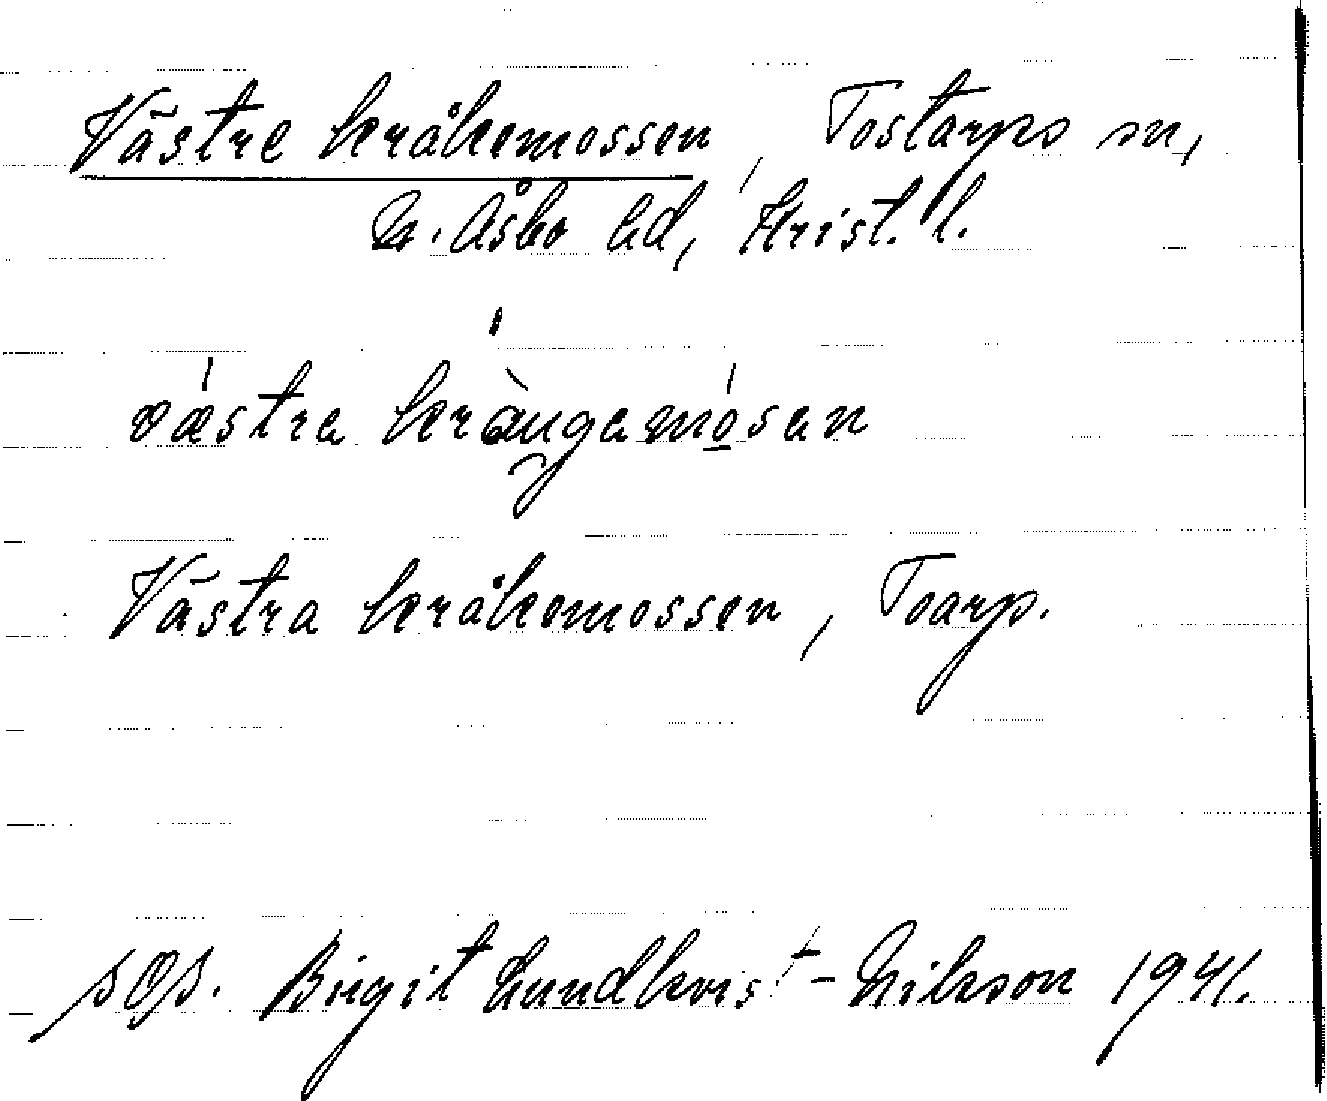 Västre kråkemossen, Tostarps sn,
N. Åsbo hd, Krist. l.
västra krångamosan
Västra kråkemossen, Toarp.
sos. Birgit Lundkvist-Nilsson 1941.